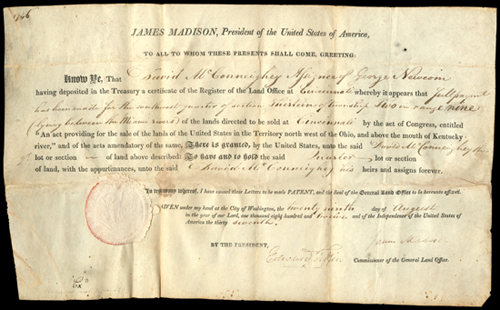 JAMES MADISON, President of the United States of America,
TO ALL TO WHOM THESE PRESENTS SHALL COME, GREETING:
Know Ye, That David McConneighey Assignee of George Newcom
having deposited in the Treasury a certificate of the Register of the Land Office at Cincinnati whereby it appears that full payment
has been made for the quarter of section of township two in range nine
(lying between the Miami rivers) of the lands directed to be sold at Cincinnati by the act of Congress, entitled
"An act providing for the sale of the lands of the United States in the Territory north west of the Ohio, and above the mouth of Kentucky
river," and of the acts amendatory of the same, There is granted, by the United States, unto the said David McConneighey the
lot or section of land above described: To have and to hold the said quarter lot or section
of land, with the appurtenances, unto the said David McConneighey his heirs and assigns forever.
In testimony whereof, I have caused these Letters to be made PATENT, and the seal of the General Land Office to be hereunto affixed.
GIVEN under my hand at the City of Washington, the twenty ninth day of August
in the year of our Lord, one thousand eight hundred and twelve and of the Independence of the United States
of America the thirty seventh.
BY THE PRESIDENT,
James Madison
Edward Tiffin
Commissioner of the General Land Office.